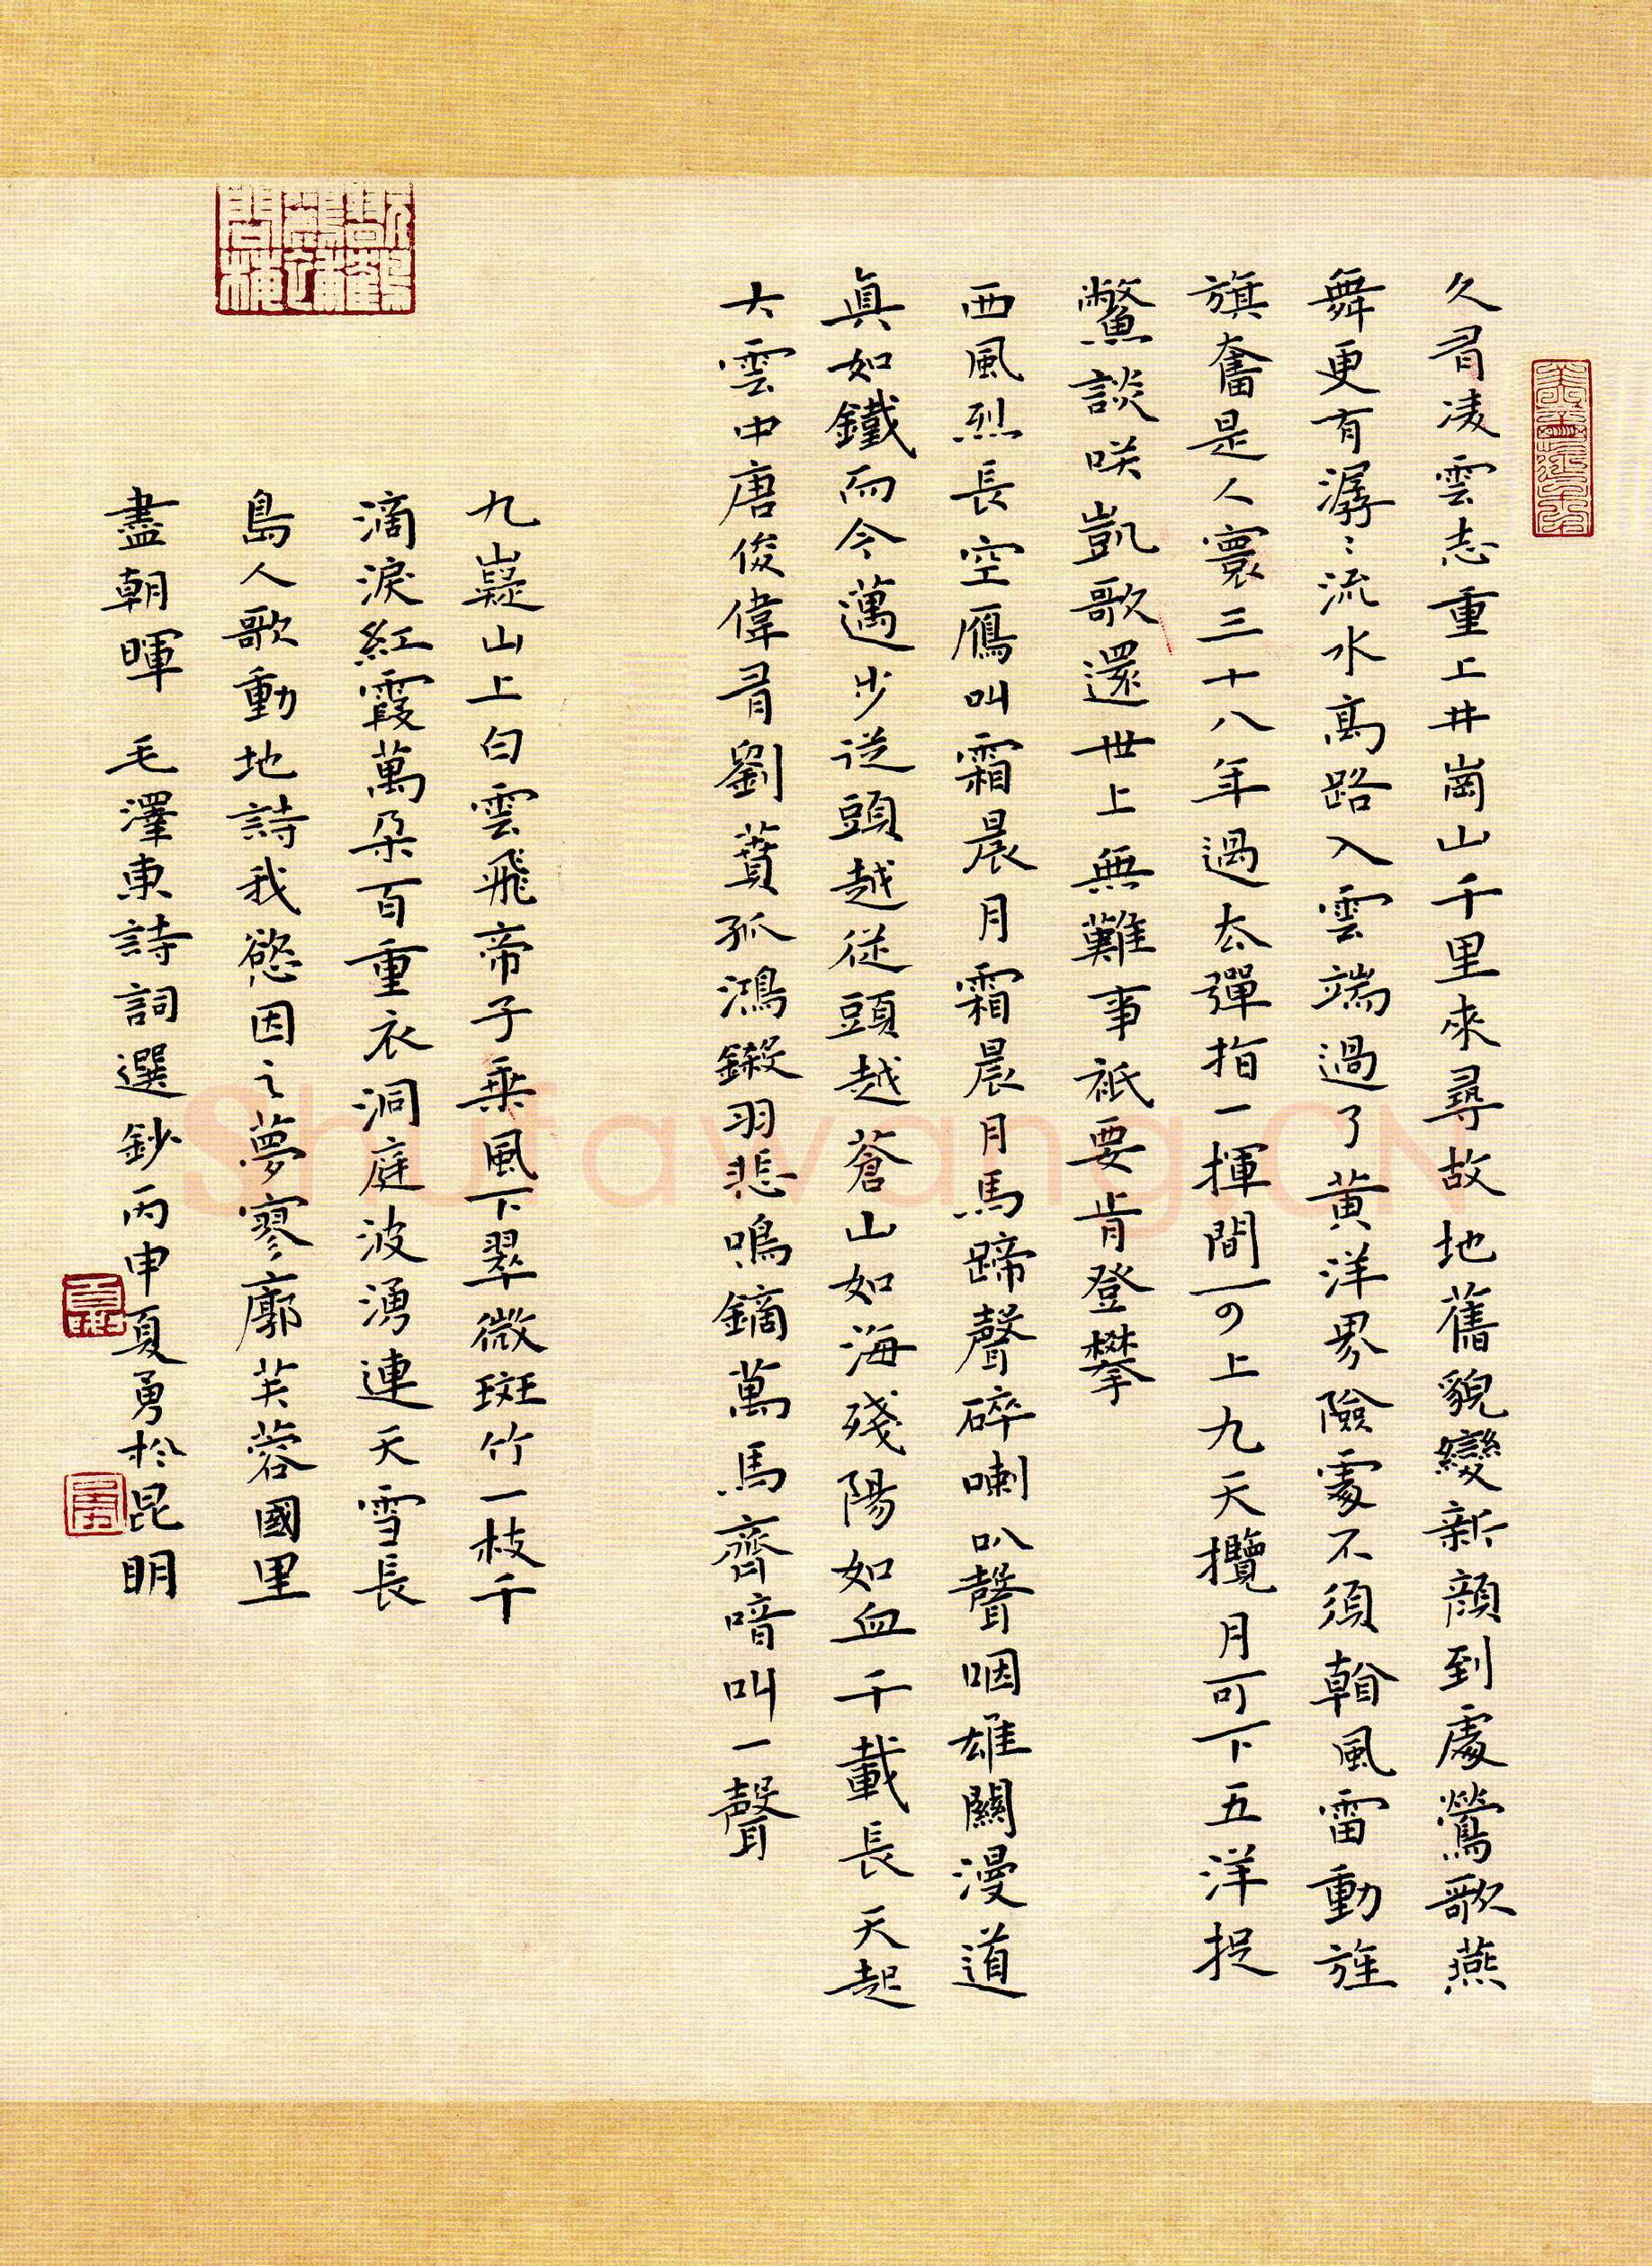 久有凌雲志重上井崗山千里來尋故地舊貌變新顔到處鶯歌燕
舞更有潺〻流水高路入雲端過了黄洋界險處不須看風雷動旌
旗奮是人寰三十八年過去彈指一揮間一可上九天攬月可下五洋捉
鱉談咲凱歌還世上無難事祇要肯登攀
西風烈長空雁叫霜晨月霜晨月馬蹄聲碎喇叭聲咽雄關漫道
真如鐵而今邁步從頭越從頭越蒼山如海殘陽如血千載長天起
大雲中唐俊偉有劉蕡孤鴻鎩羽悲鳴鏑萬馬齊喑叫一聲
九嶷山上白雲飛帝子乗風下翠微斑竹一枝千
滴淚紅霞萬朵百重衣洞庭波湧連天雪長
島人歌動地詩我慾因之夢寥廓芙蓉國里
盡朝暉 毛澤東詩詞選鈔丙申夏勇於昆明
Shufawang.CN